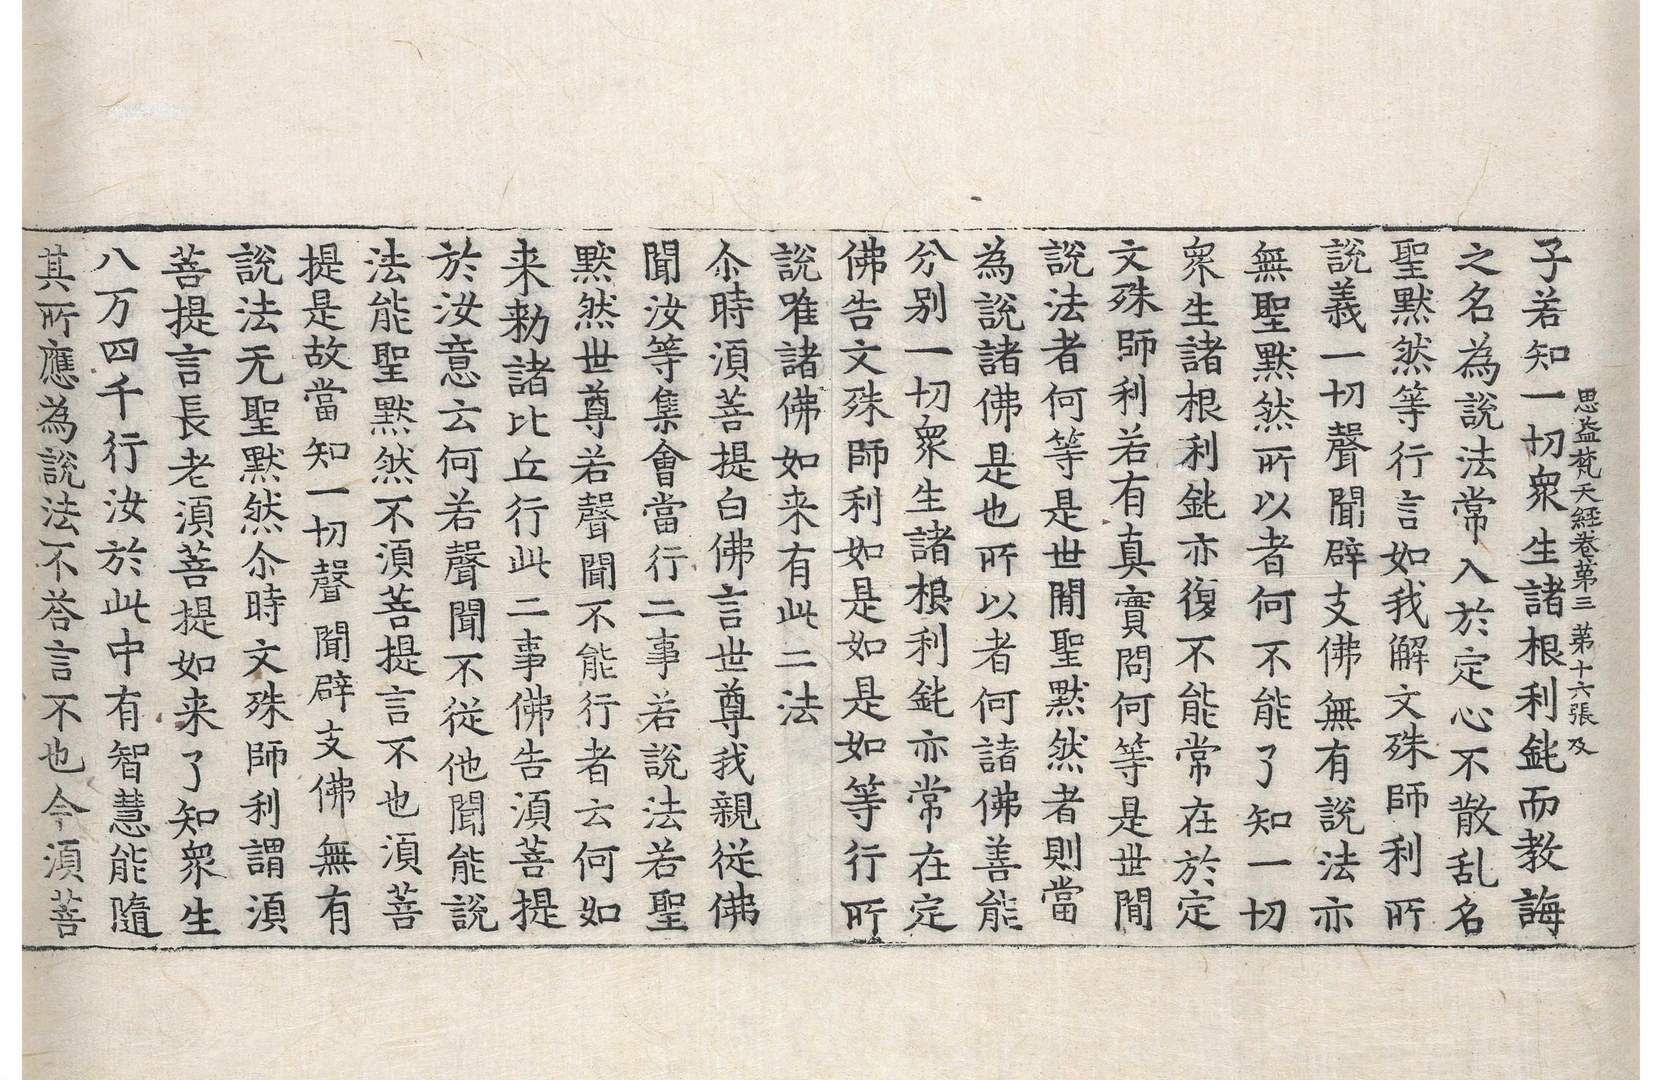 思益梵天経巻第三　第十六張　及
子若知一切衆生諸根利鈍而教誨
之名為説法常入於定心不散乱名
聖黙然等行言如我解文殊師利所
説義一切聲聞辟支佛無有説法亦
無聖黙然所以者何不能了知一切
衆生諸根利鈍亦復不能常在於定
文殊師利若有真實問何等是世間
説法者何等是世間聖黙然者則當
為説諸佛是也所以者何諸佛善能
分別一切衆生諸根利鈍亦常在定
佛告文殊師利如是如是如等行所
説唯諸佛如来有此二法
尒時湏菩提白佛言世尊我親従佛
聞汝等集會當行二事若説法若聖
黙然世尊若聲聞不能行者云何如
来勑諸比丘行此二事佛告湏菩提
於汝意云何若聲聞不従他聞能説
法能聖黙然不湏菩提言不也湏菩
提是故當知一切聲聞辟支佛無有
説法无聖黙然尒時文殊師利謂湏
菩提言長老湏菩提如来了知衆生
八万四千行汝於此中有智慧能隨
其所應為説法不荅言不也今湏菩